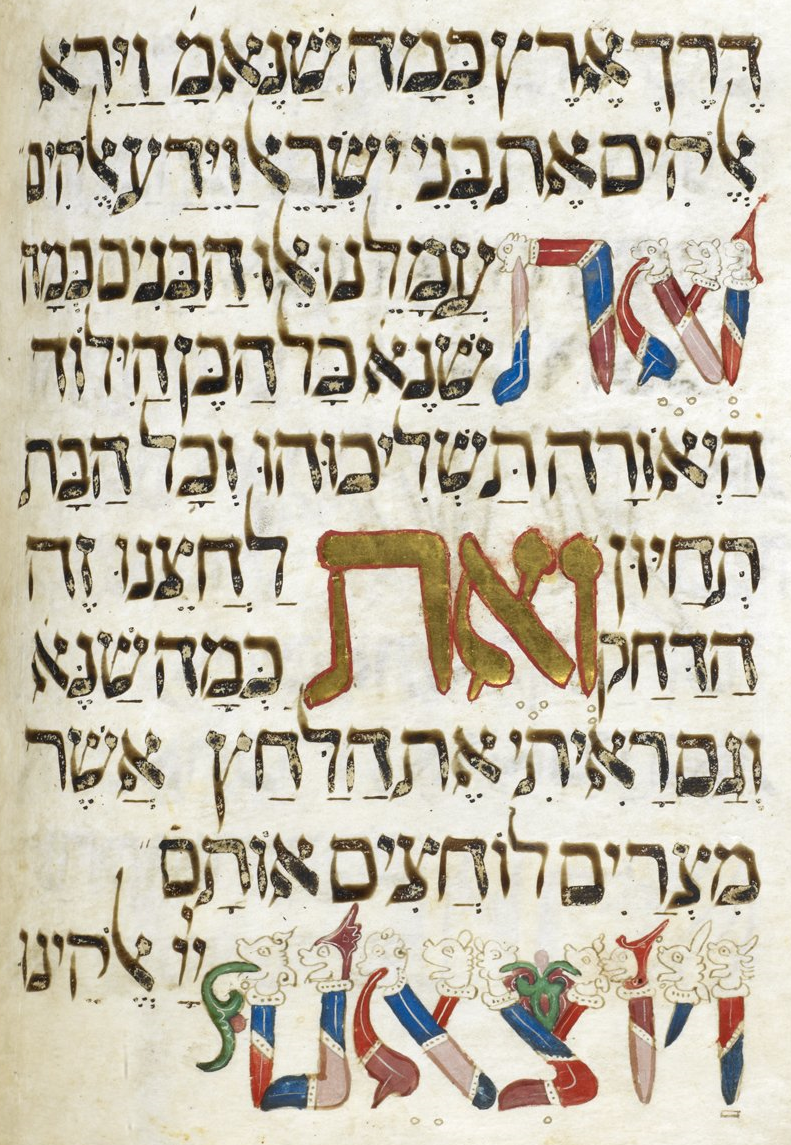 דרך ארץ כמה שנאמ' וירא
אלקים את בני ישראל וידע אלקים
ואת עמלנו אלו הבנים כמה
שנא' כל הבן הילוד
היאורה תשליכוהו וכל הבת
תחיון ואת לחצנו זה
הדחק כמה שנא'
וגם ראיתי את הלחץ אשר
מצרים לוחצים אותם
ויוצאנו יי אלקינו